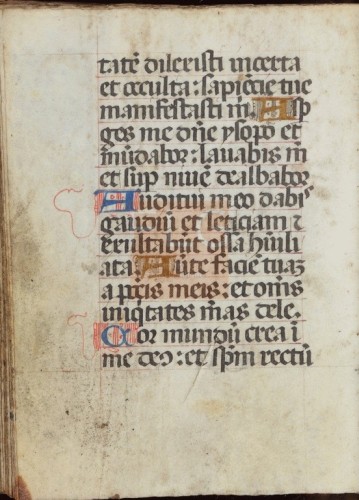 tatē dilexisti incerta
et occulta : sapiẽcie tue
manifestasti m̃. Asp
ges me dñe ysopo et
mũdabor : lauabis m̃
et sup niuẽ dealbabor
Auditui meo dabi᷒
gaudiũ et leticiam ꝛ
exultabũt ossa humili
ata. Auṫe faciẽ tuaʒ
a pc̃is meis : et om̃s
iniq̃tates mãs dele.
Cor mundũ crea ĩ
me deꝰ : et spm̃ rectũ